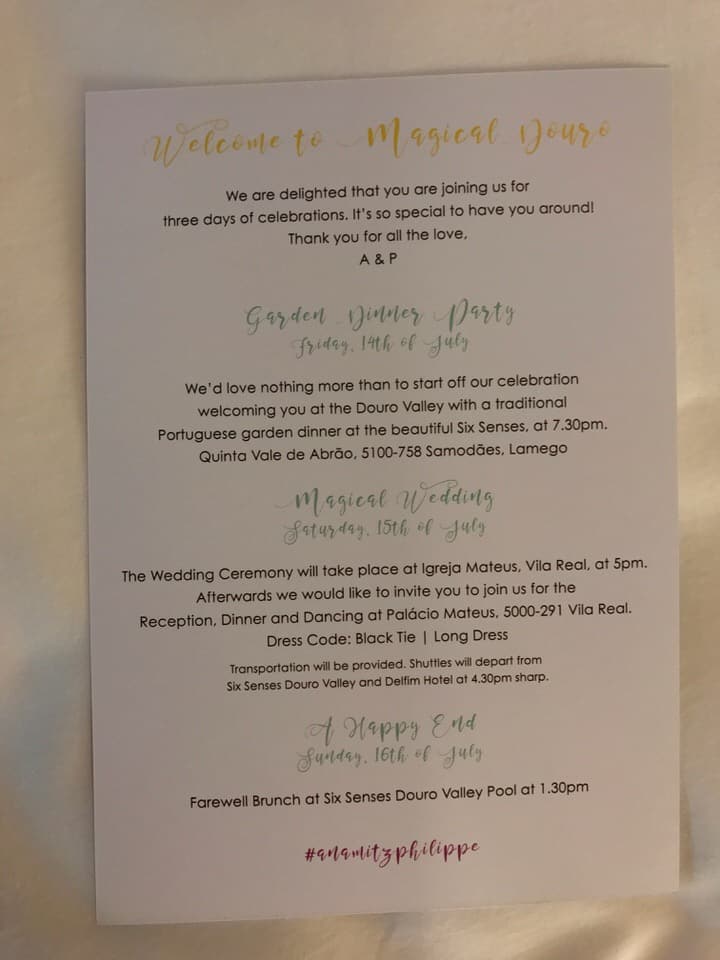 Welcome to Magical Douro
We are delighted that you are joining us for
three days of celebrations. It's so special to have you around!
Thank you for all the love,
A & P
Garden Dinner Party
Friday, 14th of July
We'd love nothing more than to start off our celebration
welcoming you at the Douro Valley with a traditional
Portuguese garden dinner at the beautiful Six Senses, at 7.30pm.
Quinta Vale de Abrão, 5100-758 Samodães, Lamego
Magical Wedding
Saturday, 15th of July
The Wedding Ceremony will take place at Igreja Mateus, Vila Real, at 5pm.
Afterwards we would like to invite you to join us for the
Reception, Dinner and Dancing at Palácio Mateus, 5000-291 Vila Real.
Dress Code: Black Tie | Long Dress
Transportation will be provided. Shuttles will depart from
Six Senses Douro Valley and Delfim Hotel at 4.30pm sharp.
A Happy End
Sunday, 16th of July
Farewell Brunch at Six Senses Douro Valley Pool at 1.30pm
#anamitzphilippe